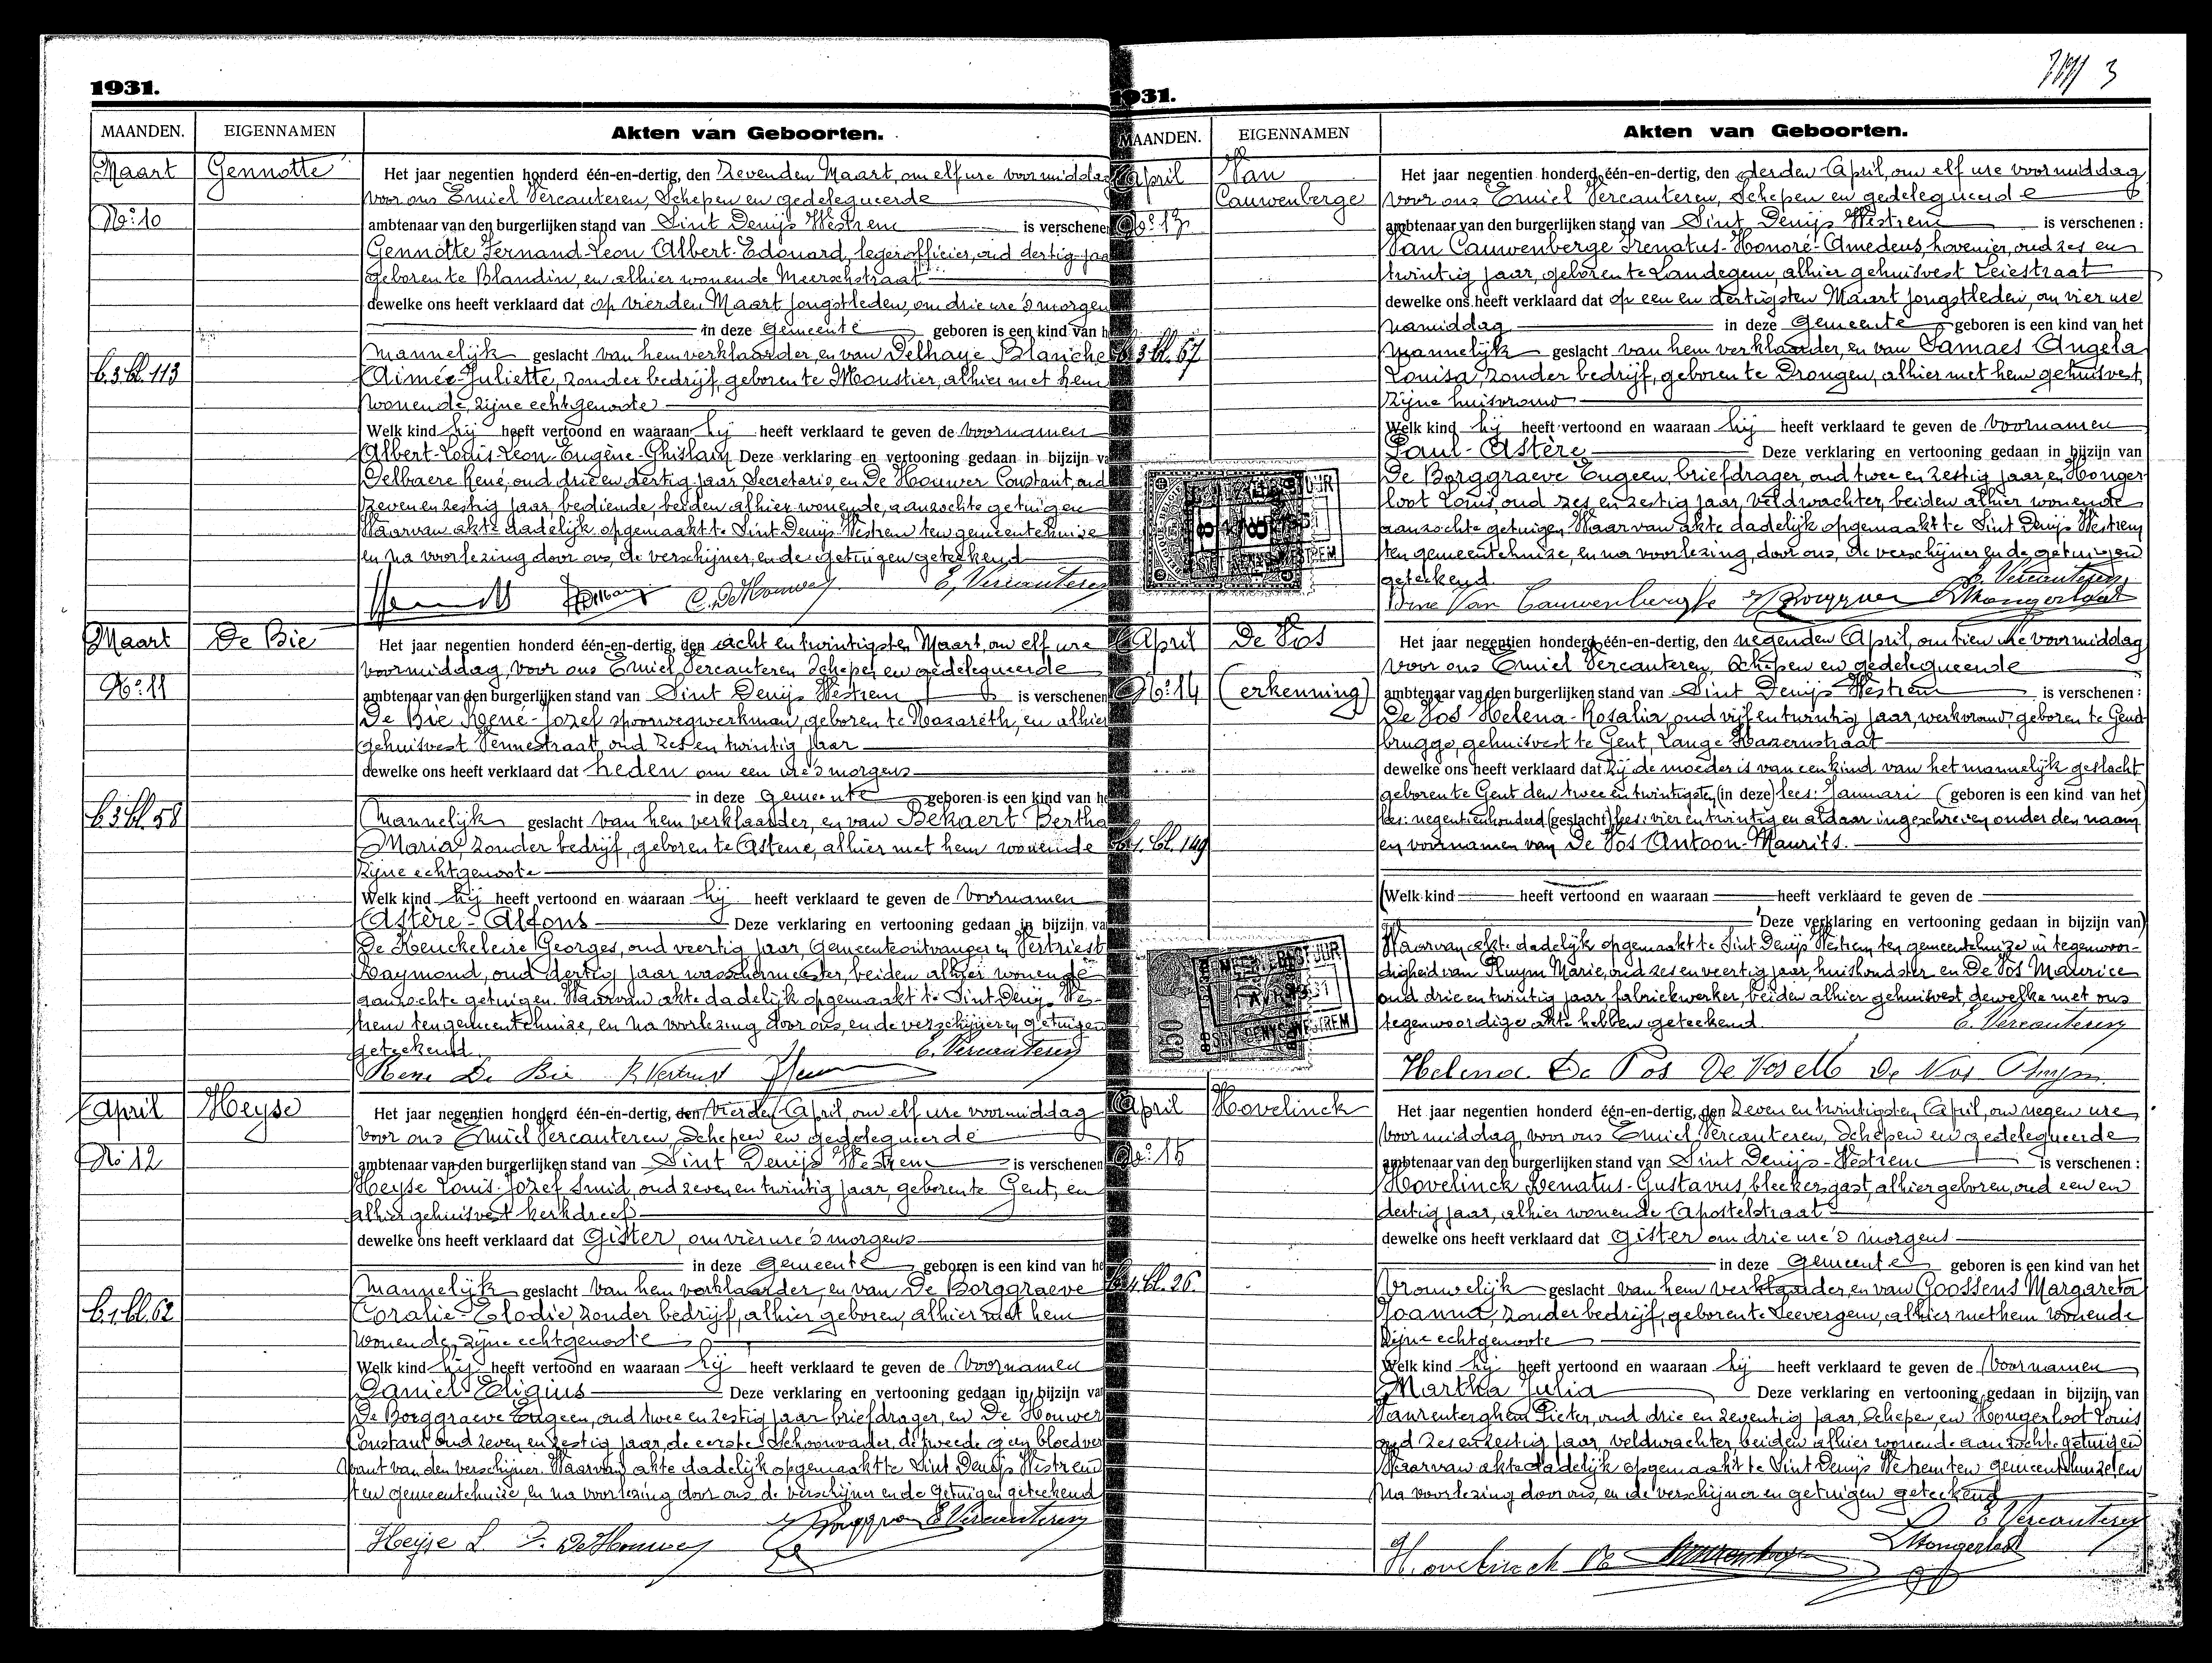 1931.
MAANDEN. EIGENNAMEN Akten van Geboorten.
Maart Gennotte
No: 10
b.3 bl. 113
Het jaar negentien honderd één-en-dertig, den Zevenden Maart, om elf ure voormiddag
voor ons Emiel Vercauteren, Schepen en gedelegueerde
ambtenaar van den burgerlijken stand van Sint Denijs Westrem is verschenen
Gennotte Fernand-Leon-Albert-Edouard, legerofficier, oud dertig jaar
geboren te Blandin, en alhier wonende Meerschstraat
dewelke ons heeft verklaard dat op vierden Maart jongstleden, om drie ure 's morgens
in deze gemeente geboren is een kind van h
Mannelijk geslacht van hem verklaarder, en van Delhaye Blanche
Aimée-Juliette, zonder bedrijf, geboren te Moustier, alhier met hem
wonende, zijne echtgenoote
Welk kind hij heeft vertoond en waaraan hij heeft verklaard te geven de voornamen
Albert-Louis-Leon-Eugène-Ghislain Deze verklaring en vertooning gedaan in bijzijn va
Delbaere René, oud drie en dertig jaar, Secretaris, en De Houwer Constant, oud
zeven en zestig jaar, bediende, beiden alhier wonende, aanzochte getuigen
Waarvan akte dadelijk opgemaakt te Sint Denijs Westrem ten gemeentehuize
en na voorlezing door ons, de verschijner, en de getuigen geteekend
C. De Houwer E. Vercauteren
Maart De Bie
No: 11
b3 bl. 58
Het jaar negentien honderd één-en-dertig, den acht en twintigsten Maart, om elf ure
voormiddag, voor ons Emiel Vercauteren Schepen en gedelegueerde
ambtenaar van den burgerlijken stand van Sint Denijs Westrem is verschenen
De Bie René-Jozef spoorwegwerkman, geboren te Nazareth, en alhier
gehuisvest Vennestraat, oud zes en twintig jaar
dewelke ons heeft verklaard dat heden om een ure 's morgens
in deze gemeente geboren is een kind van he
Mannelijk geslacht van hem verklaarder, en van Bekaert Bertha
Maria zonder bedrijf, geboren te Astene, alhier met hem wonende
zijne echtgenoote
Welk kind hij heeft vertoond en waaraan hij heeft verklaard te geven de voornamen
Astère-Alfons Deze verklaring en vertooning gedaan in bijzijn va
De Keuckeleire Georges, oud veertig jaar, Gemeenteontvanger en Vertriest
Raymond, oud dertig jaar wasschermeester, beiden alhier wonende
aanzochte getuigen. Waarvan akte dadelijk opgemaakt te Sint Denijs Wes-
trem ten gemeentehuize, en na voorlezing door ons, en de verschijner en getuigen
geteekend. E. Vercauteren
Rene De Bie R Vertriest
April Heyse
No 12
b.1 bl. 62
Het jaar negentien honderd één-en-dertig, den vierden April, om elf ure voormiddag
voor ons Emiel Vercauteren, Schepen en gedelegueerde
ambtenaar van den burgerlijken stand van Sint Denijs Westrem is verschenen
Heyse Louis-Jozef Smid, oud zeven en twintig jaar, geboren te Gent, en
alhier gehuisvest Kerkdreef
dewelke ons heeft verklaard dat Gister, om vier ure 's morgens
in deze gemeente geboren is een kind van he
Mannelijk geslacht van hem verklaarder, en van De Borggraeve
Coralie-Elodie, zonder bedrijf, alhier geboren, alhier met hem
wonende, zijne echtgenoote
Welk kind hij heeft vertoond en waaraan hij heeft verklaard te geven de voornamen
Daniel Eligius Deze verklaring en vertooning gedaan in bijzijn va
De Borggraeve Eugeen, oud twee en zestig jaar briefdrager, en De Houwer
Constant oud zeven en zestig jaar, de eerste schoonvader, de tweede geen bloedver
want van den verschijner. Waarvan akte dadelijk opgemaakt te Sint Denijs Westrem
ten gemeentehuize, en na voorlezing door ons, de verschijner en de getuigen geteekend
Heyse L C. De Houwer E. Vercauteren
3
1931.
MAANDEN. EIGENNAMEN Akten van Geboorten.
April Van Cauwenberge
No: 13
b.3 bl. 67
Het jaar negentien honderd één-en-dertig, den derden April, om elf ure voormiddag
voor ons Emiel Vercauteren, Schepen en gedelegueerde
ambtenaar van den burgerlijken stand van Sint Denijs Westrem is verschenen :
Van Cauwenberge Irenatus-Honoré-Amedeus, hovenier, oud zes en
twintig jaar, geboren te Landegem, alhier gehuisvest Leiestraat
dewelke ons heeft verklaard dat op een en dertigsten Maart jongstleden, om vier ure
namiddag in deze Gemeente geboren is een kind van het
Mannelijk geslacht van hem verklaarder, en van Damaes Angela
Louisa, zonder bedrijf, geboren te Drongen, alhier met hem gehuisvest,
zijne huisvrouw
Welk kind hij heeft vertoond en waaraan hij heeft verklaard te geven de voornamen
Paul-Astère Deze verklaring en vertooning gedaan in bijzijn van
De Borggraeve Eugeen, briefdrager, oud twee en zestig jaar, en Honger-
loot Louis, oud zes en zestig jaar, veldwachter, beiden alhier wonende
aanzochte getuigen. Waarvan akte dadelijk opgemaakt te Sint Denijs Westrem
ten gemeentehuize, en na voorlezing, door ons, de verschijner en de getuigen
geteekend. E. Vercauteren
Van Cauwenberghe L. Hongerloot
April De Vos
No: 14 (erkenning)
b.1. bl. 149
0.50
Het jaar negentien honderd één-en-dertig, den negenden April, om tien ure voormiddag
voor ons Emiel Vercauteren, Schepen en gedelegueerde
ambtenaar van den burgerlijken stand van Sint Denijs Westrem is verschenen :
De Vos Helena-Rosalia, oud vijf en twintig jaar, werkvrouw, geboren te Gend-
brugge, gehuisvest te Gent, Lange Hazernstraat
dewelke ons heeft verklaard dat zij de moeder is van een kind van het mannelijk geslacht
geboren te Gent den twee en twintigsten (in deze) lees: Januari (geboren is een kind van het)
lees: negentienhonderd (geslacht) lees: vier en twintig en aldaar ingeschreven onder den naam
en voornamen van De Vos Antoon-Maurits.
(Welk kind heeft vertoond en waaraan heeft verklaard te geven de
Deze verklaring en vertooning gedaan in bijzijn van)
Waarvan akte dadelijk opgemaakt te Sint Denijs Westrem ten gemeentehuize in tegenwoor-
digheid van Pluym Marie, oud zes en veertig jaar, huishoudster en De Vos Maurice
oud drie en twintig jaar, fabriekwerker, beiden alhier gehuisvest, dewelke met ons
tegenwoordige akte hebben geteekend. E. Vercauteren
Helena De Vos De Vos
April Hovelinck
No: 15
b.4 bl. 26.
Het jaar negentien honderd één-en-dertig, den Zeven en twintigsten April, om negen ure
voormiddag, voor ons Emiel Vercauteren, Schepen en gedelegueerde
ambtenaar van den burgerlijken stand van Sint Denijs-Westrem is verschenen :
Hovelinck Renatus-Gustavus, bleekersgast, alhier geboren, oud een en
dertig jaar, alhier wonende Apostelstraat
dewelke ons heeft verklaard dat gister om drie ure 's morgens
in deze Gemeente geboren is een kind van het
Vrouwelijk geslacht van hem verklaarder, en van Goossens Margareta
Joanna, zonder bedrijf, geboren te Seevergem, alhier met hem wonende
zijne echtgenoote
Welk kind hij heeft vertoond en waaraan hij heeft verklaard te geven de voornamen
Martha Julia Deze verklaring en vertooning gedaan in bijzijn van
Vanrenterghem Pieter, oud drie en zeventig jaar, Schepen, en Hongerloot Louis
oud zes en zestig jaar veldwachter, beiden alhier wonende aanzochte getuigen
Waarvan akte dadelijk opgemaakt te Sint Denijs Westrem ten gemeentehuize, en
na voorlezing door ons, en de verschijner en getuigen geteekend
E. Vercauteren
Hovelinck R L. Hongerloot